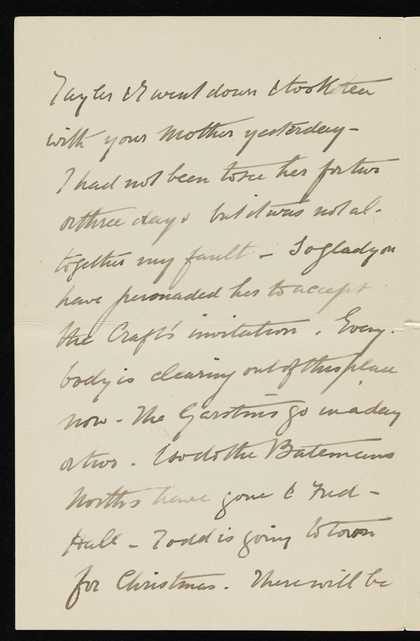 Tayler & I went down & took tea
with your Mother yesterday -
I had not been to see her for two
or three days but it was not al-
together my fault - So glad you
have persuaded her to accept
the Craft's invitation. Every-
body is clearing out of this place
now - The Garstins go in a day
or two. So do the Batemans
Norths have gone & Fred -
Hall - Todd is going to town
for Christmas. There will be